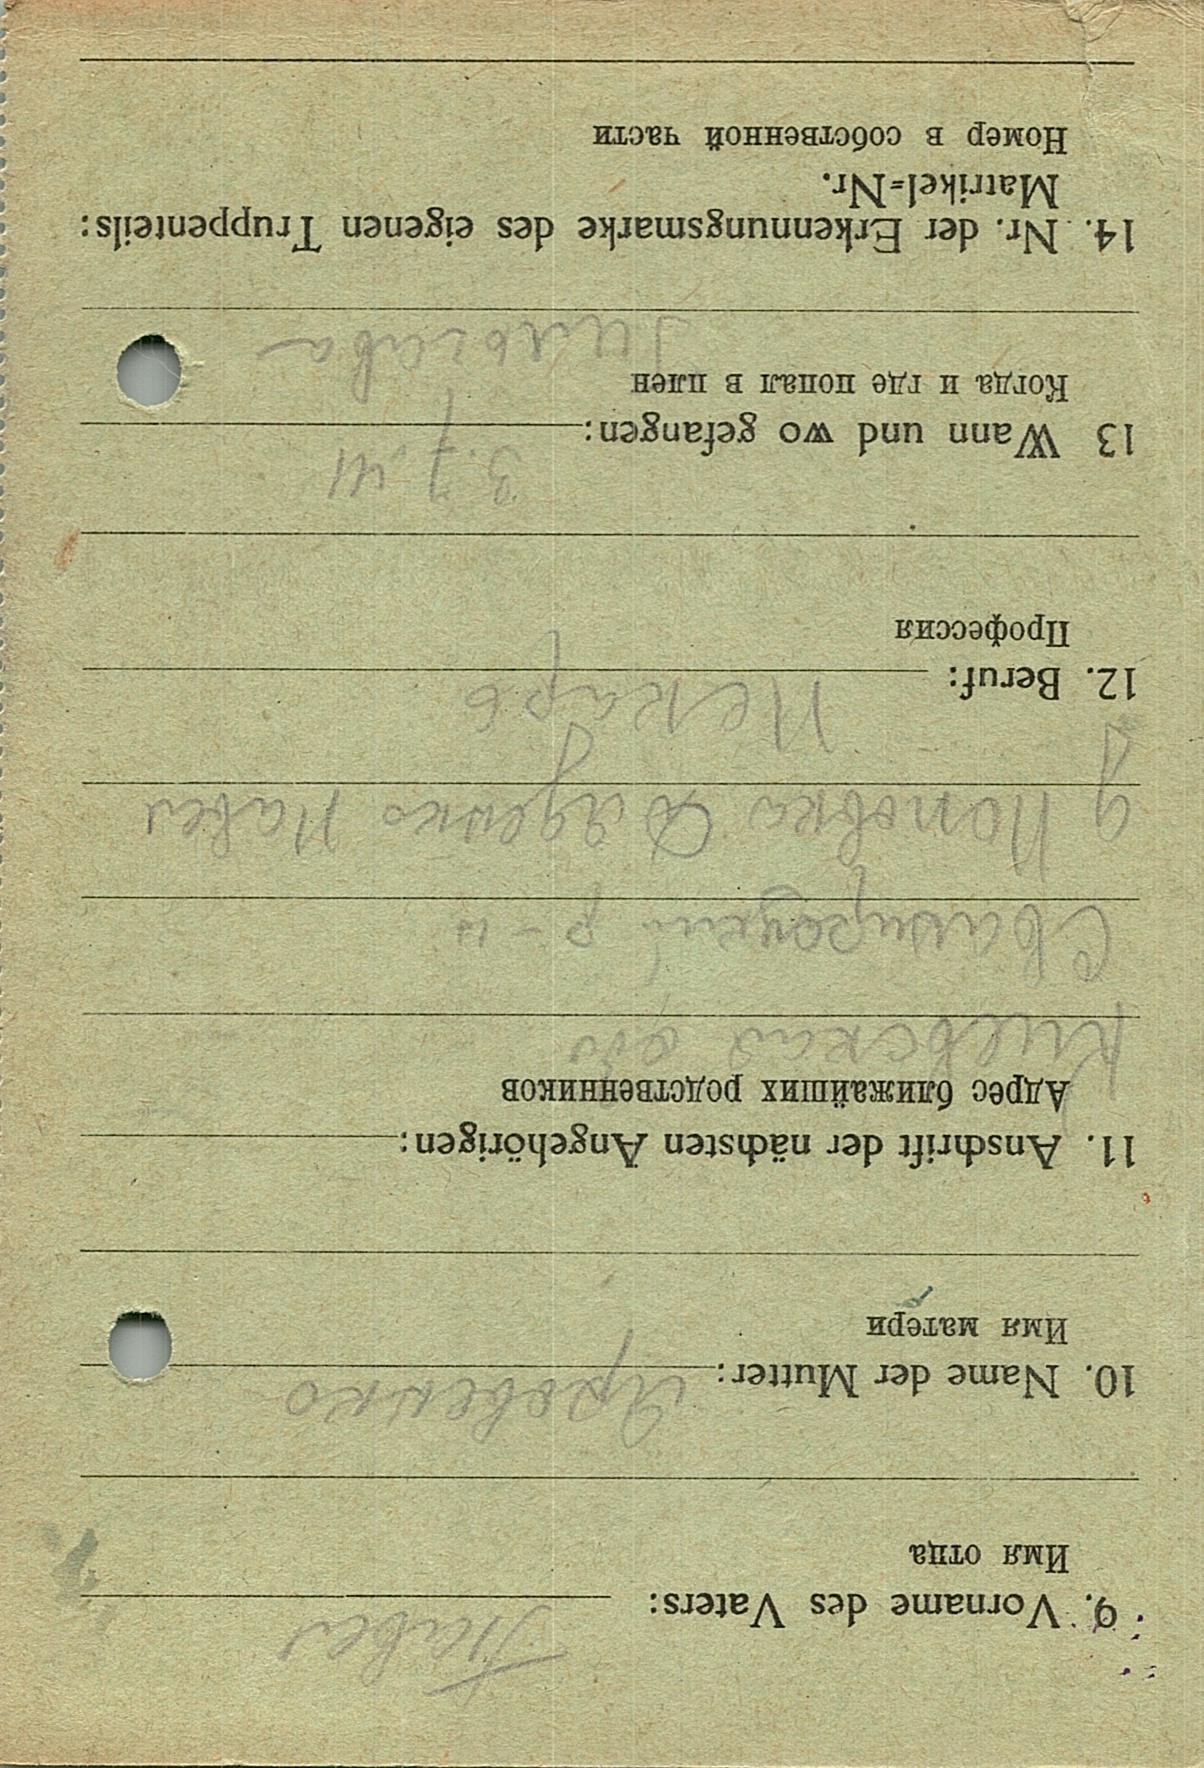 9. Vorname des Vaters: Павел
Имя отца
10. Name der Mutter: Яровенко
Имя матери
11. Anschrift der nächsten Angehörigen:
Адрес ближайших родственников
Киевская обл
р-н
д Поповка Дяденко Павел
12. Beruf: Пекарь
Профессия
13 Wann und wo gefangen: 3.7.41
Когда и где попал в плен
14. Nr. der Erkennungsmarke des eigenen Truppenteils:
Matrikel=Nr.
Номер в собственной части